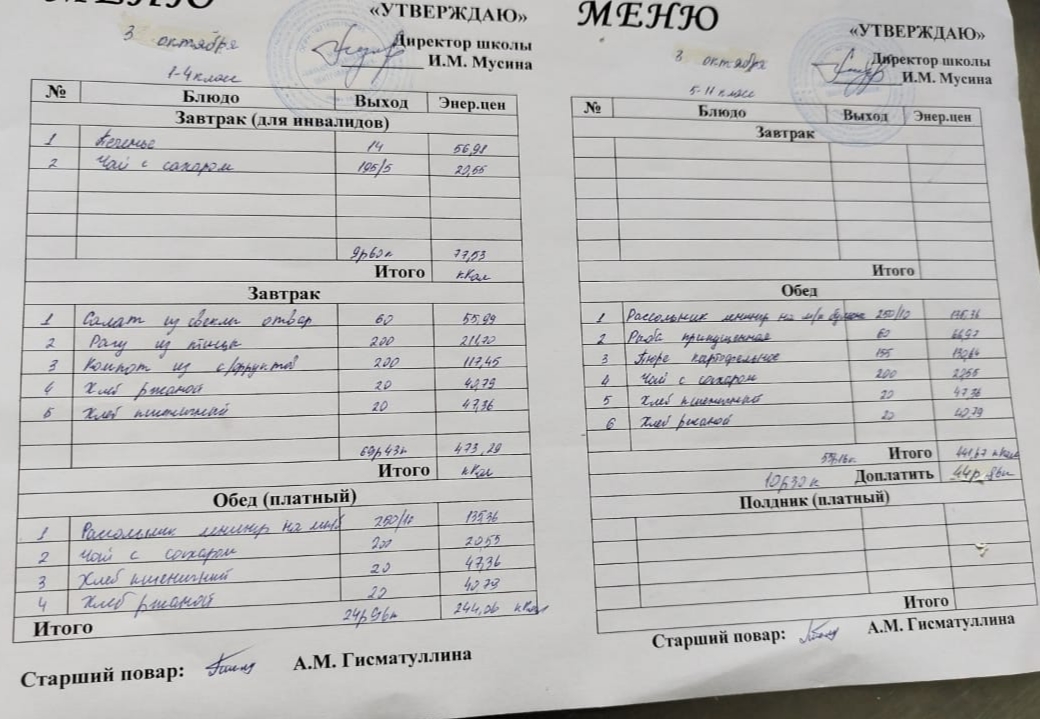 МЕНЮ
«УТВЕРЖДАЮ»
3 октября
Директор школы
И.М. Мусина
1-4 класс
№ Блюдо Выход Энер.цен
Завтрак (для инвалидов)
1 Печенье 14 56,98
2 Чай с сахаром 195/5 20,55
9р60к 77,53
Итого кКал
Завтрак
1 Салат из свеклы отвар 60 55,99
2 Рагу из птицы 200 211,70
3 Компот из с/фруктов 200 117,45
4 Хлеб ржаной 20 40,79
5 Хлеб пшеничный 20 47,36
69р43к 473,29
Итого кКал
Обед (платный)
1 Рассольник ленингр на м/б 250/10 135,36
2 Чай с сахаром 200 20,55
3 Хлеб пшеничный 20 47,36
4 Хлеб ржаной 20 40,79
Итого 24р96к 244,06 кКал
Старший повар: А.М. Гисматуллина
МЕНЮ
«УТВЕРЖДАЮ»
3 октября
Директор школы
И.М. Мусина
5-11 класс
№ Блюдо Выход Энер.цен
Завтрак
Итого
Обед
1 Рассольник ленингр на м/к 250/10 135,36
2 Рыба припущенная 60 66,97
3 Пюре картофельное 155 130,64
4 Чай с сахаром 200 20,55
5 Хлеб пшеничный 20 47,36
6 Хлеб ржаной 20 40,79
Итого 441,67 кКал
10р30к Доплатить 44р 86к
Полдник (платный)
Итого
Старший повар: А.М. Гисматуллина